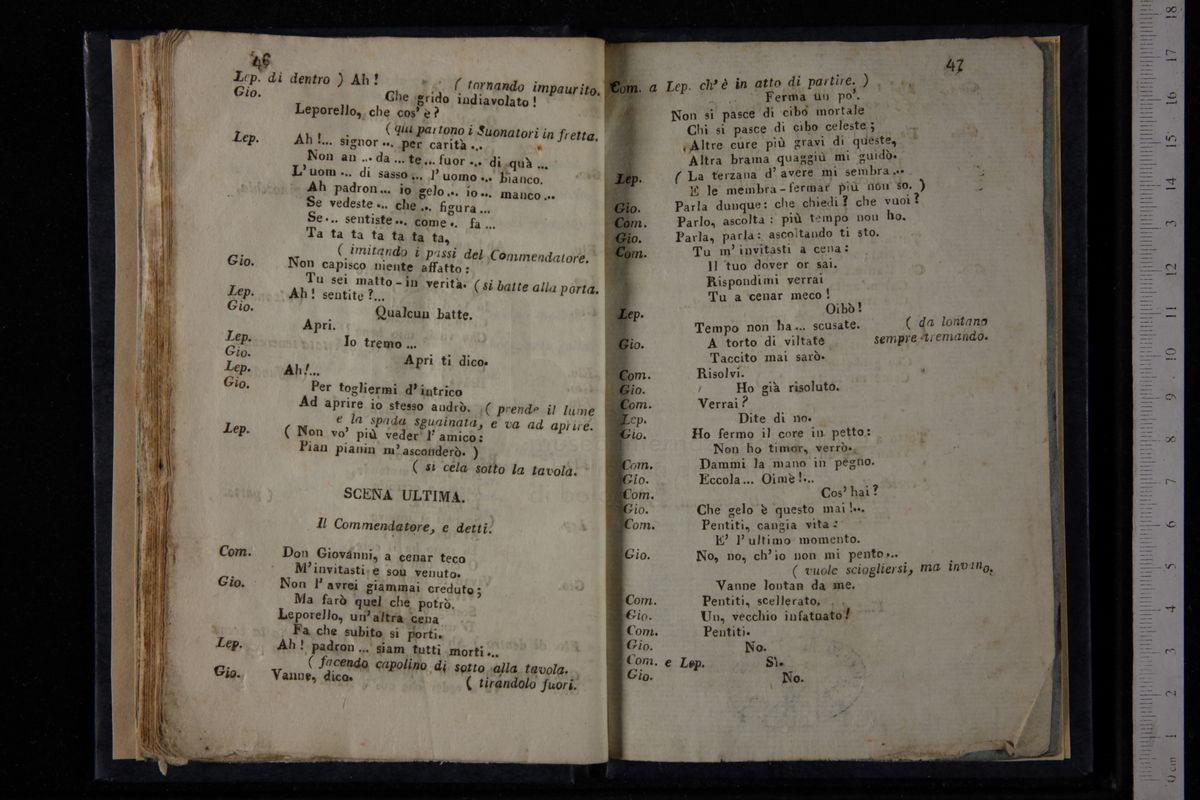 46
Lep. di dentro ) Ah !
( tornando impaurito.
Gio. Che grido indiavolato !
Leporello, che cos' è ?
( qui partono i Suonatori in fretta.
Lep. Ah !... signor ... per carità ...
Non an ... da ... te ... fuor ... di quà ...
L'uom ... di sasso ... l'uomo ... bianco.
Ah padron ... io gelo ... io ... manco ...
Se vedeste ... che ... figura ...
Se ... sentiste ... come .. fa ...
Ta ta ta ta ta ta ta,
( imitando i passi del Commendatore.
Gio. Non capisco niente affatto :
Tu sei matto - in verità. ( si batte alla porta.
Lep. Ah ! sentite ?...
Gio. Qualcun batte.
Apri.
Lep. Io tremo ...
Gio. Apri ti dico.
Lep. Ah!...
Gio. Per togliermi d'intrico
Ad aprire io stesso andrò. ( prende il lume
e la spada sguainata, e va ad aprire.
Lep. ( Non vo' più veder l'amico :
Pian pianin m'asconderò. )
( si cela sotto la tavola.
SCENA ULTIMA.
Il Commendatore, e detti.
Com. Don Giovanni, a cenar teco
M'invitasti e son venuto.
Gio. Non l'avrei giammai creduto ;
Ma farò quel che potrò.
Leporello, un'altra cena
Fa che subito si porti.
Lep. Ah ! padron ... siam tutti morti ...
( facendo capolino di sotto alla tavola.
Gio. Vanne, dico.
( tirandolo fuori.
47
Com. a Lep. ch' è in atto di partire. )
Ferma un po'.
Non si pasce di cibo mortale
Chi si pasce di cibo celeste ;
Altre cure più gravi di queste,
Altra brama quaggiù mi guidò.
Lep. ( La terzana d'avere mi sembra ...
E le membra - fermar più non so. )
Gio. Parla dunque : che chiedi ? che vuoi ?
Com. Parlo, ascolta : più tempo non ho.
Gio. Parla, parla : ascoltando ti sto.
Com. Tu m'invitasti a cena :
Il tuo dover or sai.
Rispondimi verrai
Tu a cenar meco !
Lep. Oibò !
Tempo non ha ... scusate. ( da lontano
sempre tremando.
Gio. A torto di viltate
Taccito mai sarò.
Com. Risolvi.
Gio. Ho già risoluto.
Com. Verrai ?
Lep. Dite di no.
Gio. Ho fermo il core in petto :
Non ho timor, verrò.
Com. Dammi la mano in pegno.
Gio. Eccola ... Oimè !...
Com. Cos' hai ?
Gio. Che gelo è questo mai !...
Com. Pentiti, cangia vita :
E' l'ultimo momento.
Gio. No, no, ch'io non mi pento ...
( vuole sciogliersi, ma invano.
Vanne lontan da me.
Com. Pentiti, scellerato.
Gio. Un, vecchio infatuato !
Com. Pentiti.
Gio. No.
Com. e Lep. Sì.
Gio. No.
0 cm 1 2 3 4 5 6 7 8 9 10 11 12 13 14 15 16 17 18